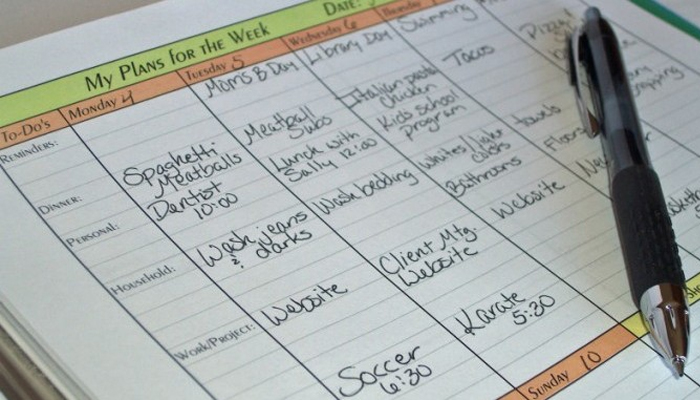 My Plans for the Week
Date:
To-Do's
Monday 4
Tuesday 5
Wednesday 6
Thursday
Reminders:
Mom's B Day
Library Day
Swimming
Dinner:
Spaghetti
Meatballs
Meatball
Subs
Italian pasta
Chicken
Tacos
Pizza
Personal:
Dentist
10:00
Lunch with
Sally 12:00
Kids school
program
Household:
Wash jeans
& darks
Wash bedding
Whites/light
colors
Bathrooms
towels
Floors
Work/Project:
Website
Client Mtg.
Website
Website
Soccer
6:30
Karate
5:30
Sunday 10